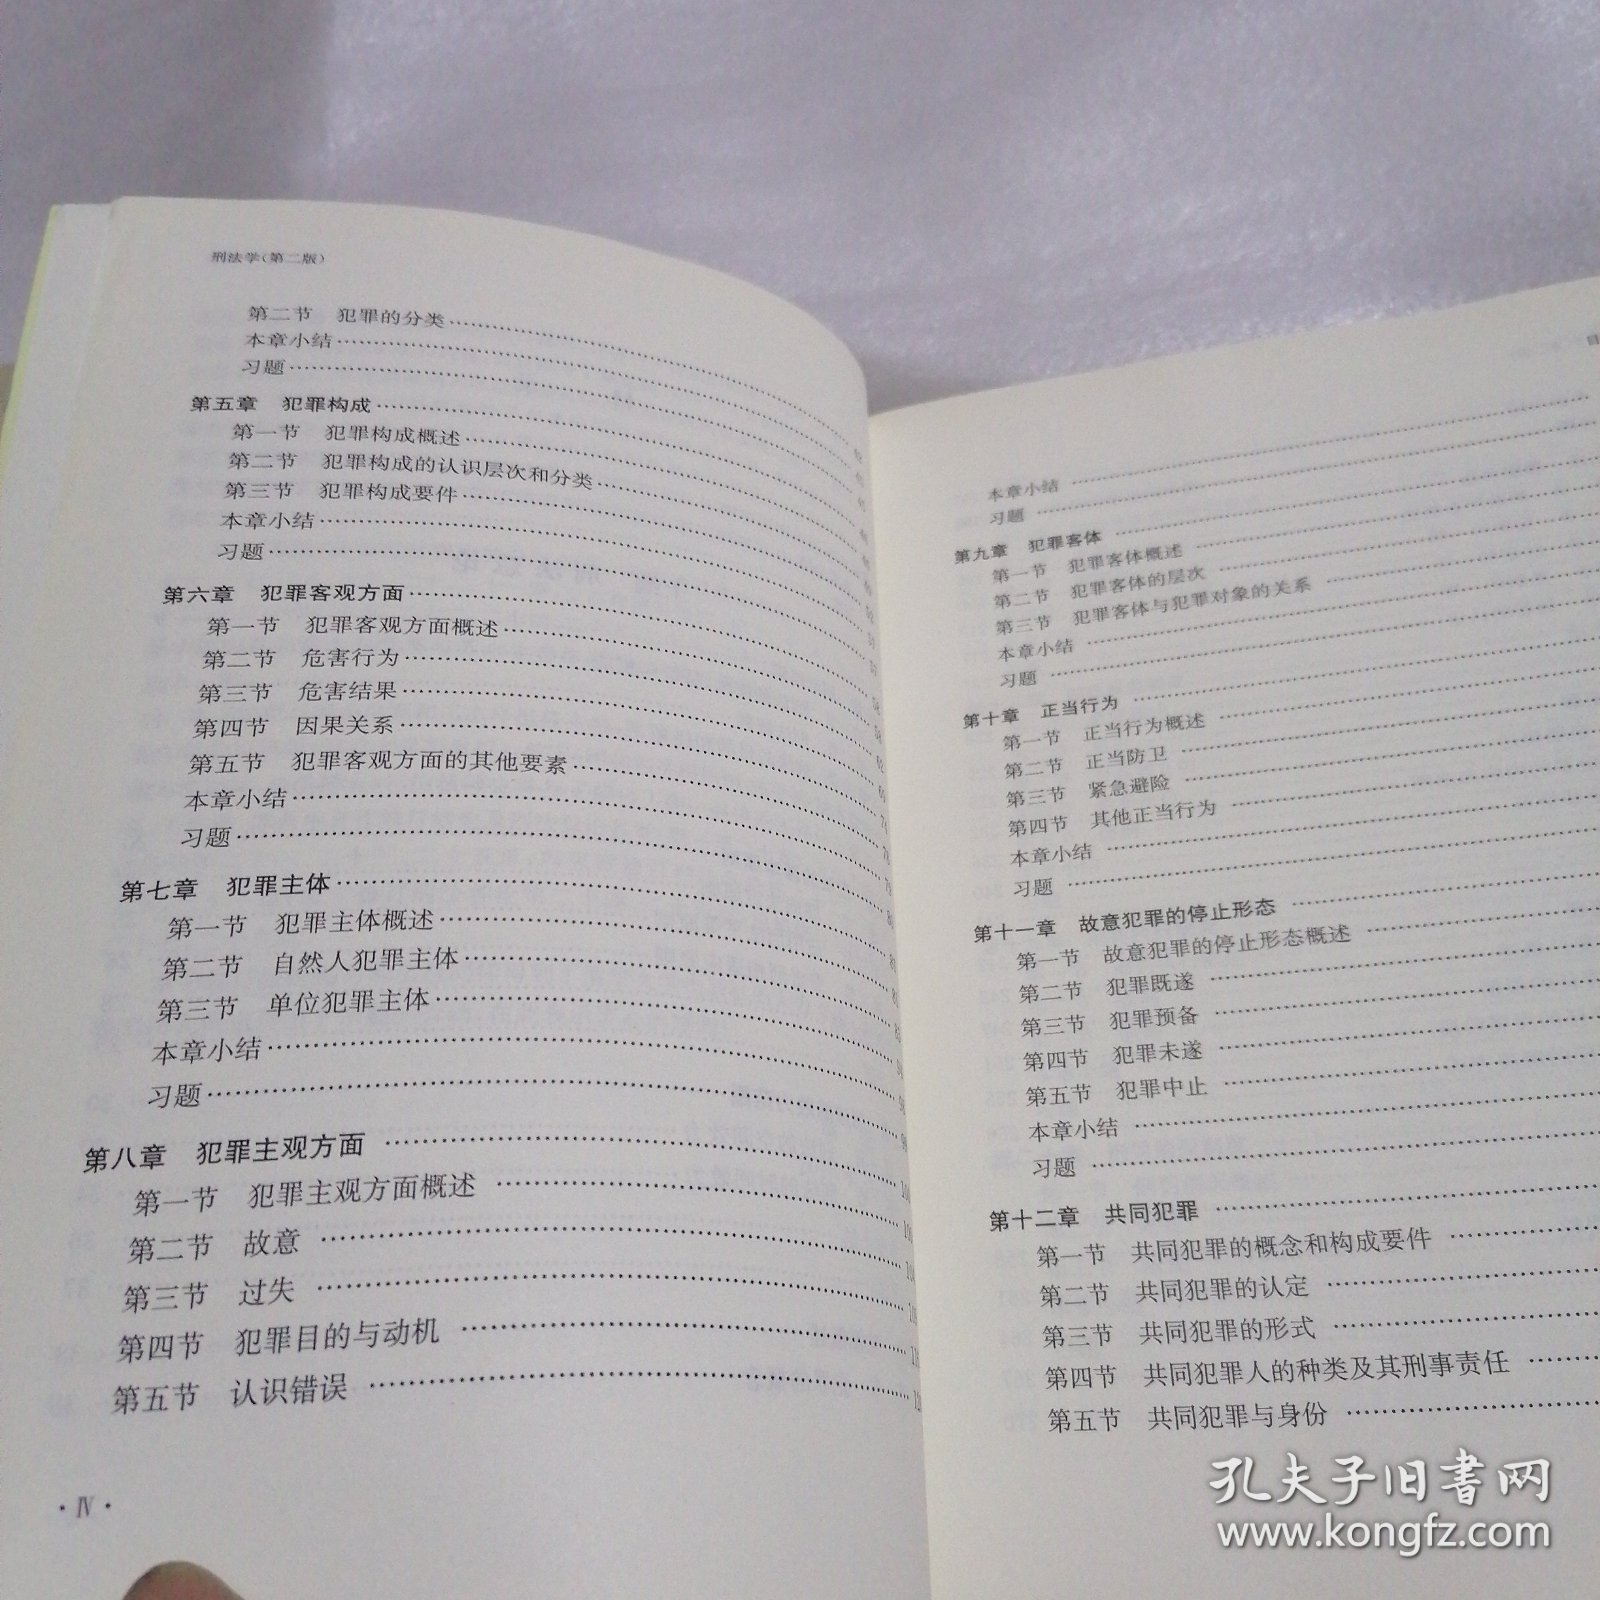 刑法学(第二版)
第二节 犯罪的分类
本章小结
习题
第五章 犯罪构成
第一节 犯罪构成概述
第二节 犯罪构成的认识层次和分类
第三节 犯罪构成要件
本章小结
习题
第六章 犯罪客观方面
第一节 犯罪客观方面概述
第二节 危害行为
第三节 危害结果
第四节 因果关系
第五节 犯罪客观方面的其他要素
本章小结
习题
第七章 犯罪主体
第一节 犯罪主体概述
第二节 自然人犯罪主体
第三节 单位犯罪主体
本章小结
习题
第八章 犯罪主观方面
第一节 犯罪主观方面概述
第二节 故意
第三节 过失
第四节 犯罪目的与动机
第五节 认识错误
· Ⅳ ·
目
本章小结
习题
第九章 犯罪客体
第一节 犯罪客体概述
第二节 犯罪客体的层次
第三节 犯罪客体与犯罪对象的关系
本章小结
习题
第十章 正当行为
第一节 正当行为概述
第二节 正当防卫
第三节 紧急避险
第四节 其他正当行为
本章小结
习题
第十一章 故意犯罪的停止形态
第一节 故意犯罪的停止形态概述
第二节 犯罪既遂
第三节 犯罪预备
第四节 犯罪未遂
第五节 犯罪中止
本章小结
习题
第十二章 共同犯罪
第一节 共同犯罪的概念和构成要件
第二节 共同犯罪的认定
第三节 共同犯罪的形式
第四节 共同犯罪人的种类及其刑事责任
第五节 共同犯罪与身份
孔夫子旧书网
www.kongfz.com